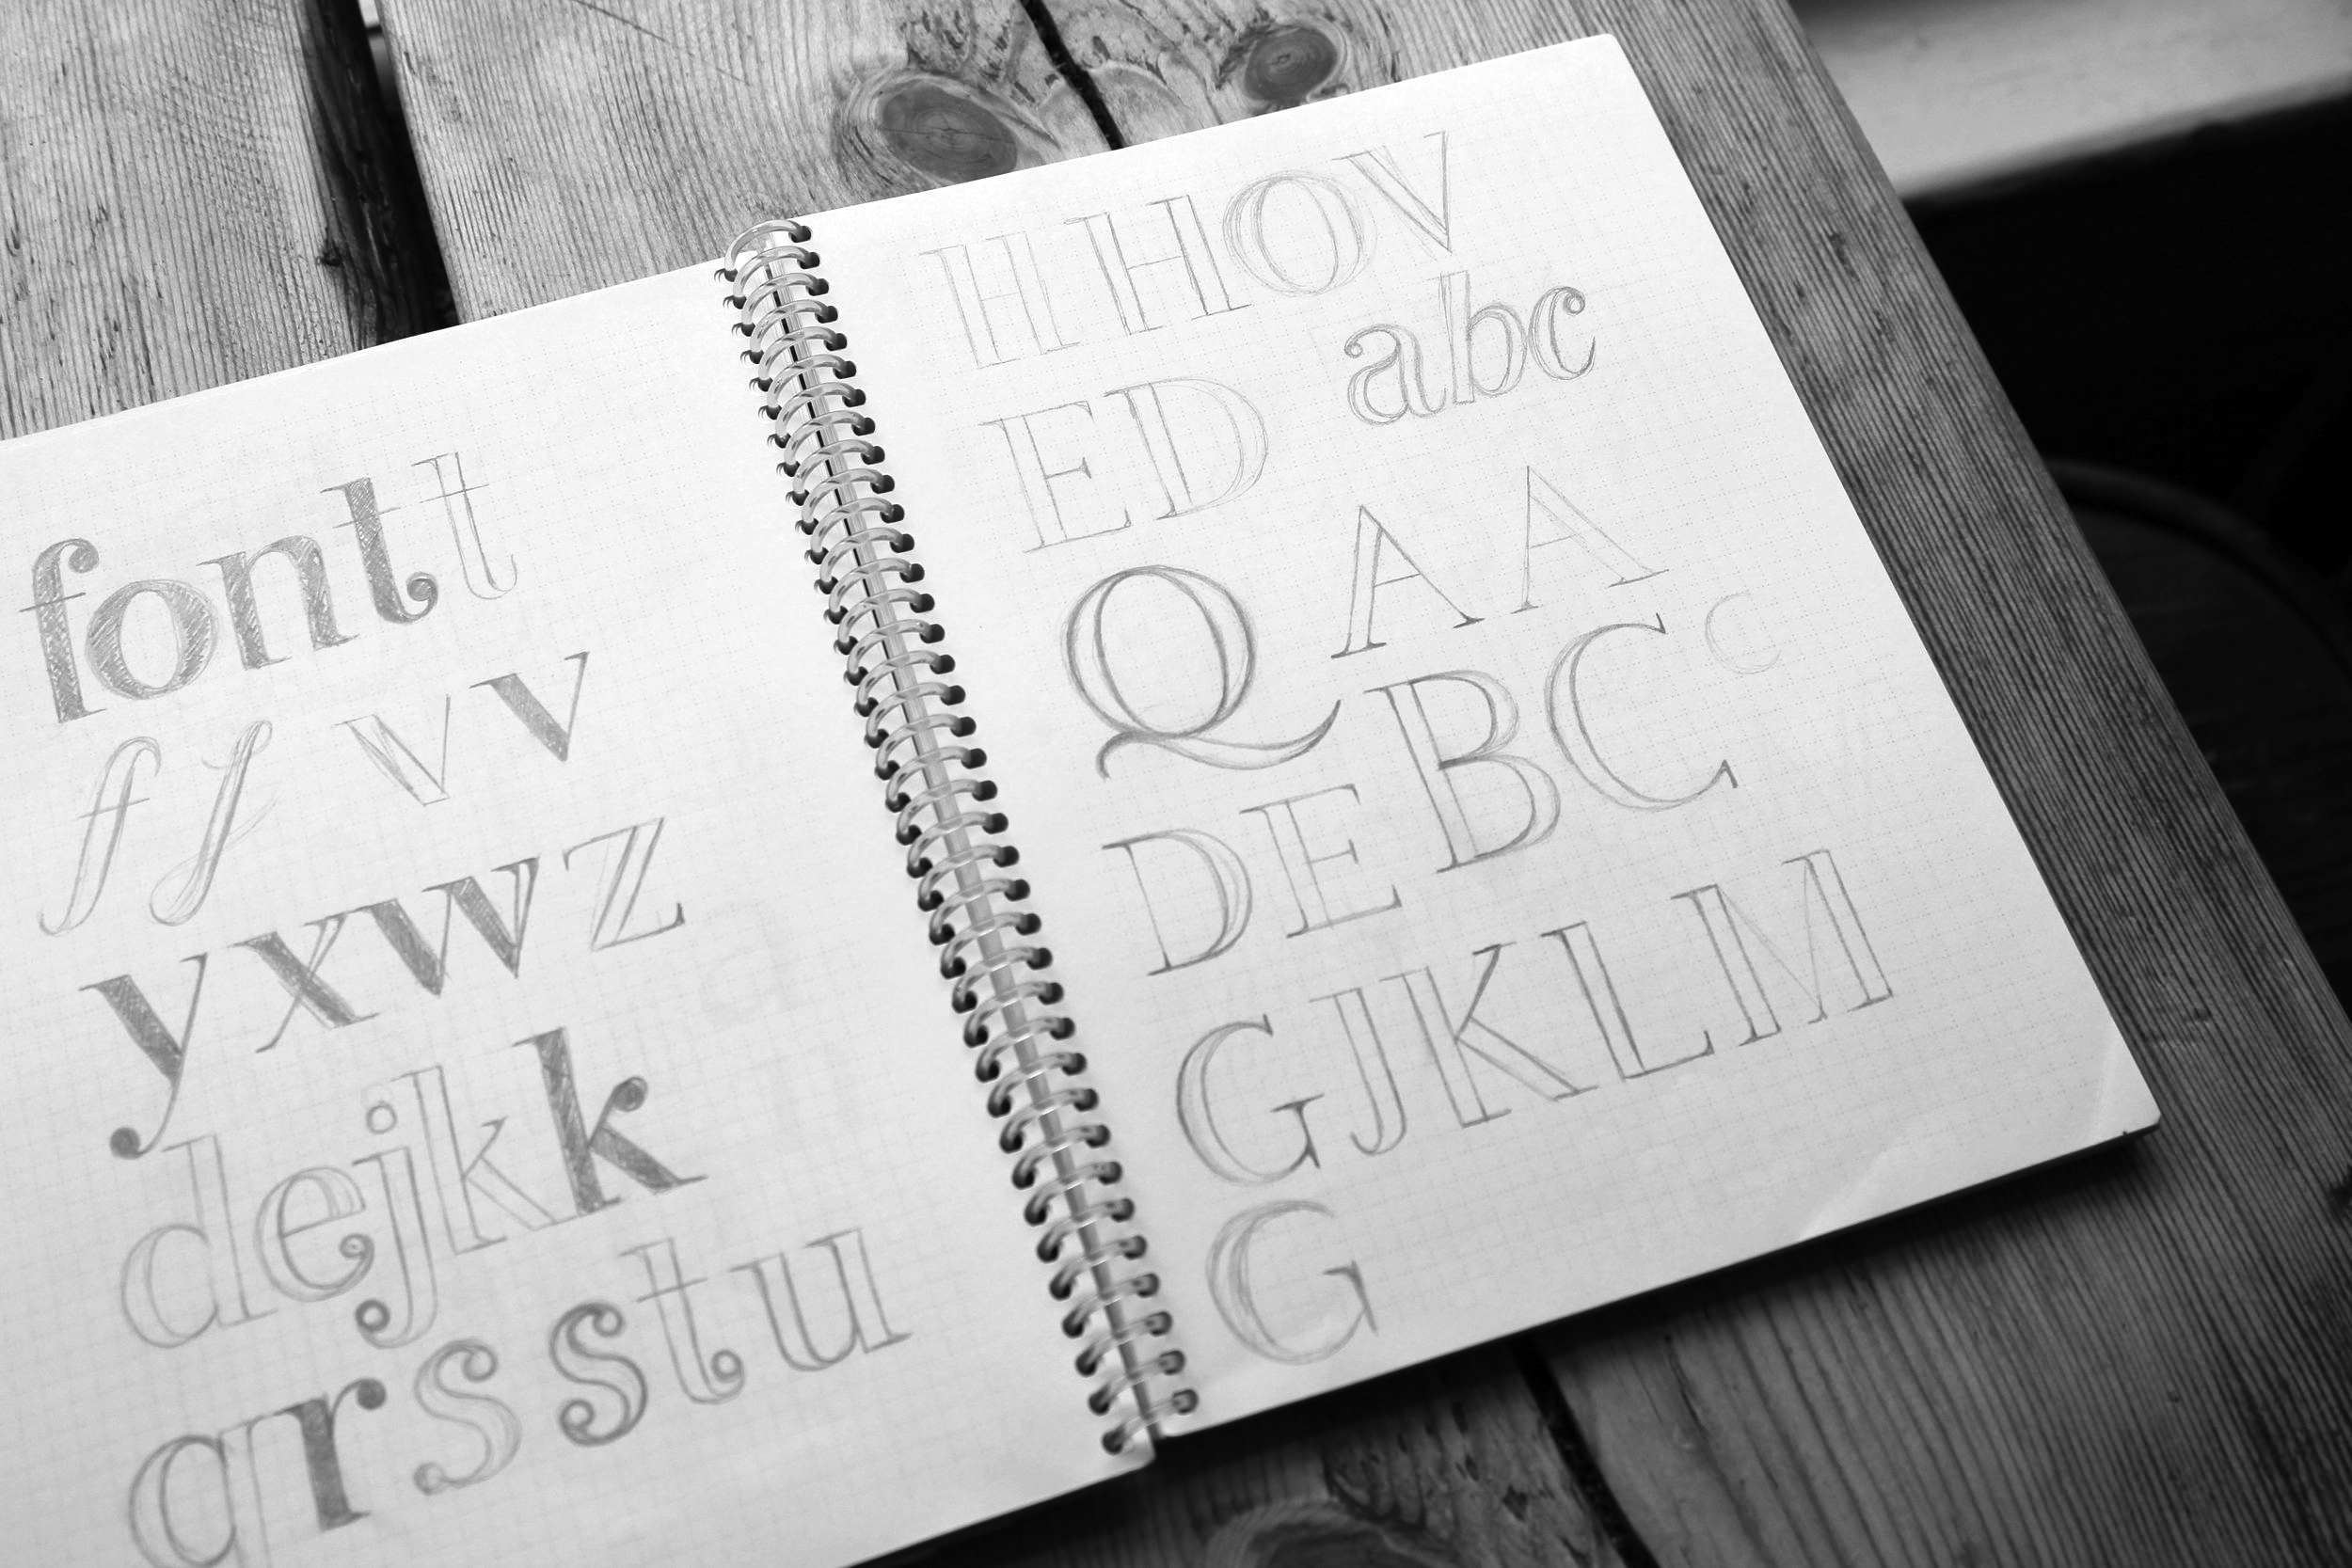 fontt
ff vv
yxwz
dejkk
qrsstu
HHOV
abc
ED
Q A A
BC c
DE
GJKLM
G